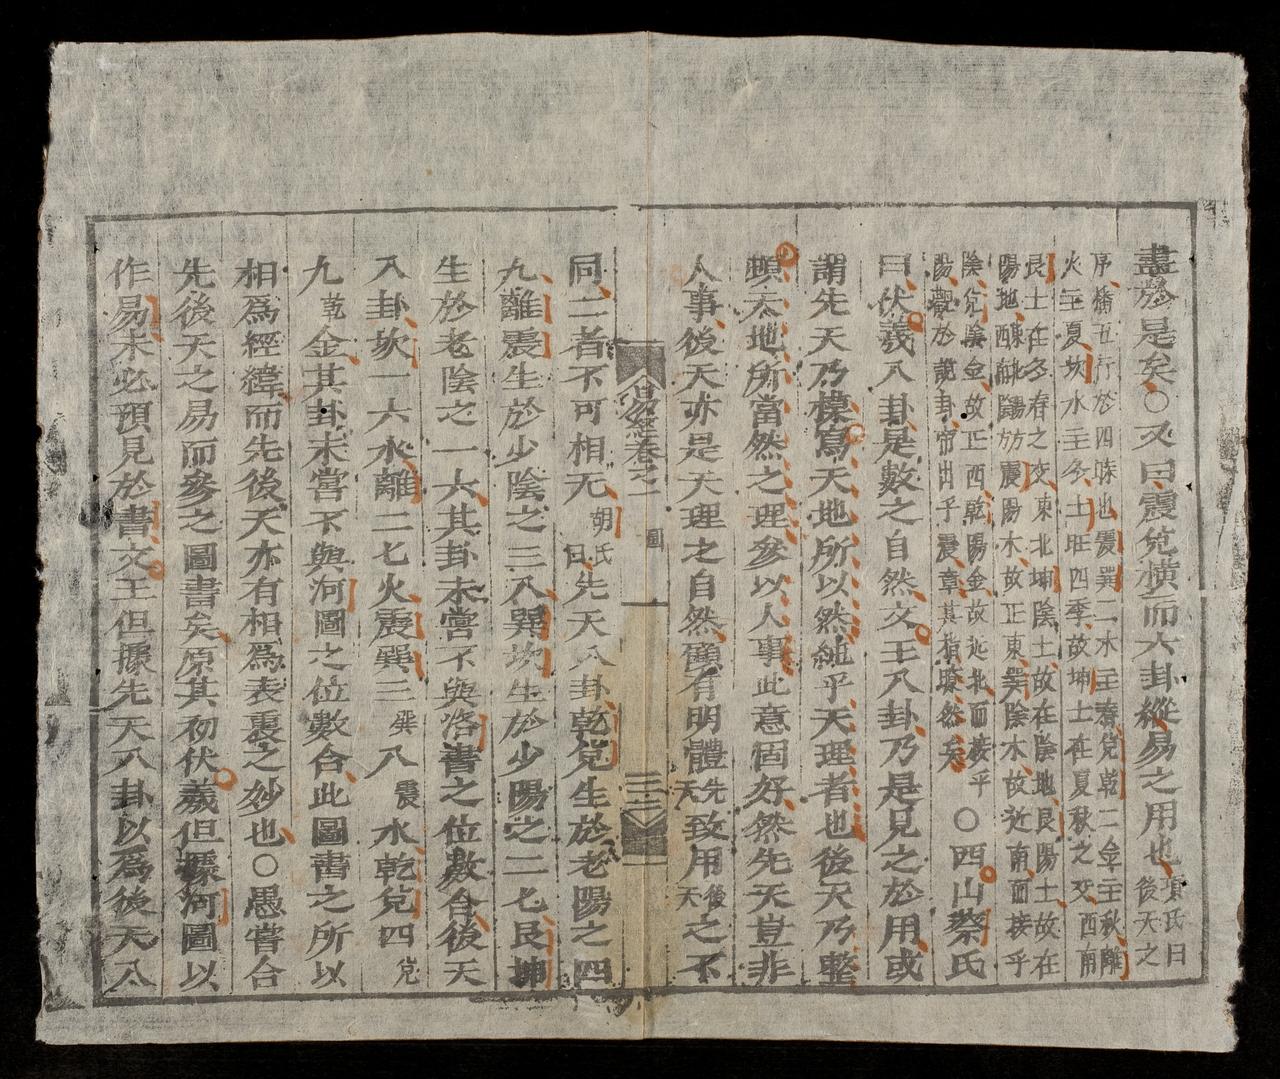 盡於是矣○又曰震兌橫而六卦縱易之用也項氏曰後天之
序播五行於四時也震巽二木主春兌乾二金主秋離
火主夏坎水主冬土旺四季故坤土在夏秋之交西南
艮土在冬春之交東北坤陰土故在陰地艮陽土故在
陽地東北陽方西南陰方震陽木故正東巽陰木故近南而接乎
陰兌陰金故正西乾陽金故近北而接乎
陽觀於說卦帝出乎震章其指瞭然矣○西山蔡氏
曰伏羲八卦是數之自然文王八卦乃是見之於用或
謂先天乃模寫天地所以然純乎天理者也後天乃整
頓天地所當然之理參以人事此意固好然先天豈非
人事後天亦是天理之自然須有明體先天致用後天之不
易經卷之一 圖 三二
同二者不可相无胡氏曰先天八卦乾兌生於老陽之四
九離震生於少陰之三八巽坎生於少陽之二七艮坤
生於老陰之一六其卦未嘗不與洛書之位數合後天
八卦坎一六水離二七火震巽三巽八震木乾兌四兌
九乾金其卦未嘗不與河圖之位數合此圖書之所以
相爲經緯而先後天亦有相爲表裏之妙也○愚嘗合
先後天之易而參之圖書矣原其初伏羲但據河圖以
作易未必預見於書文王但據先天八卦以爲後天八